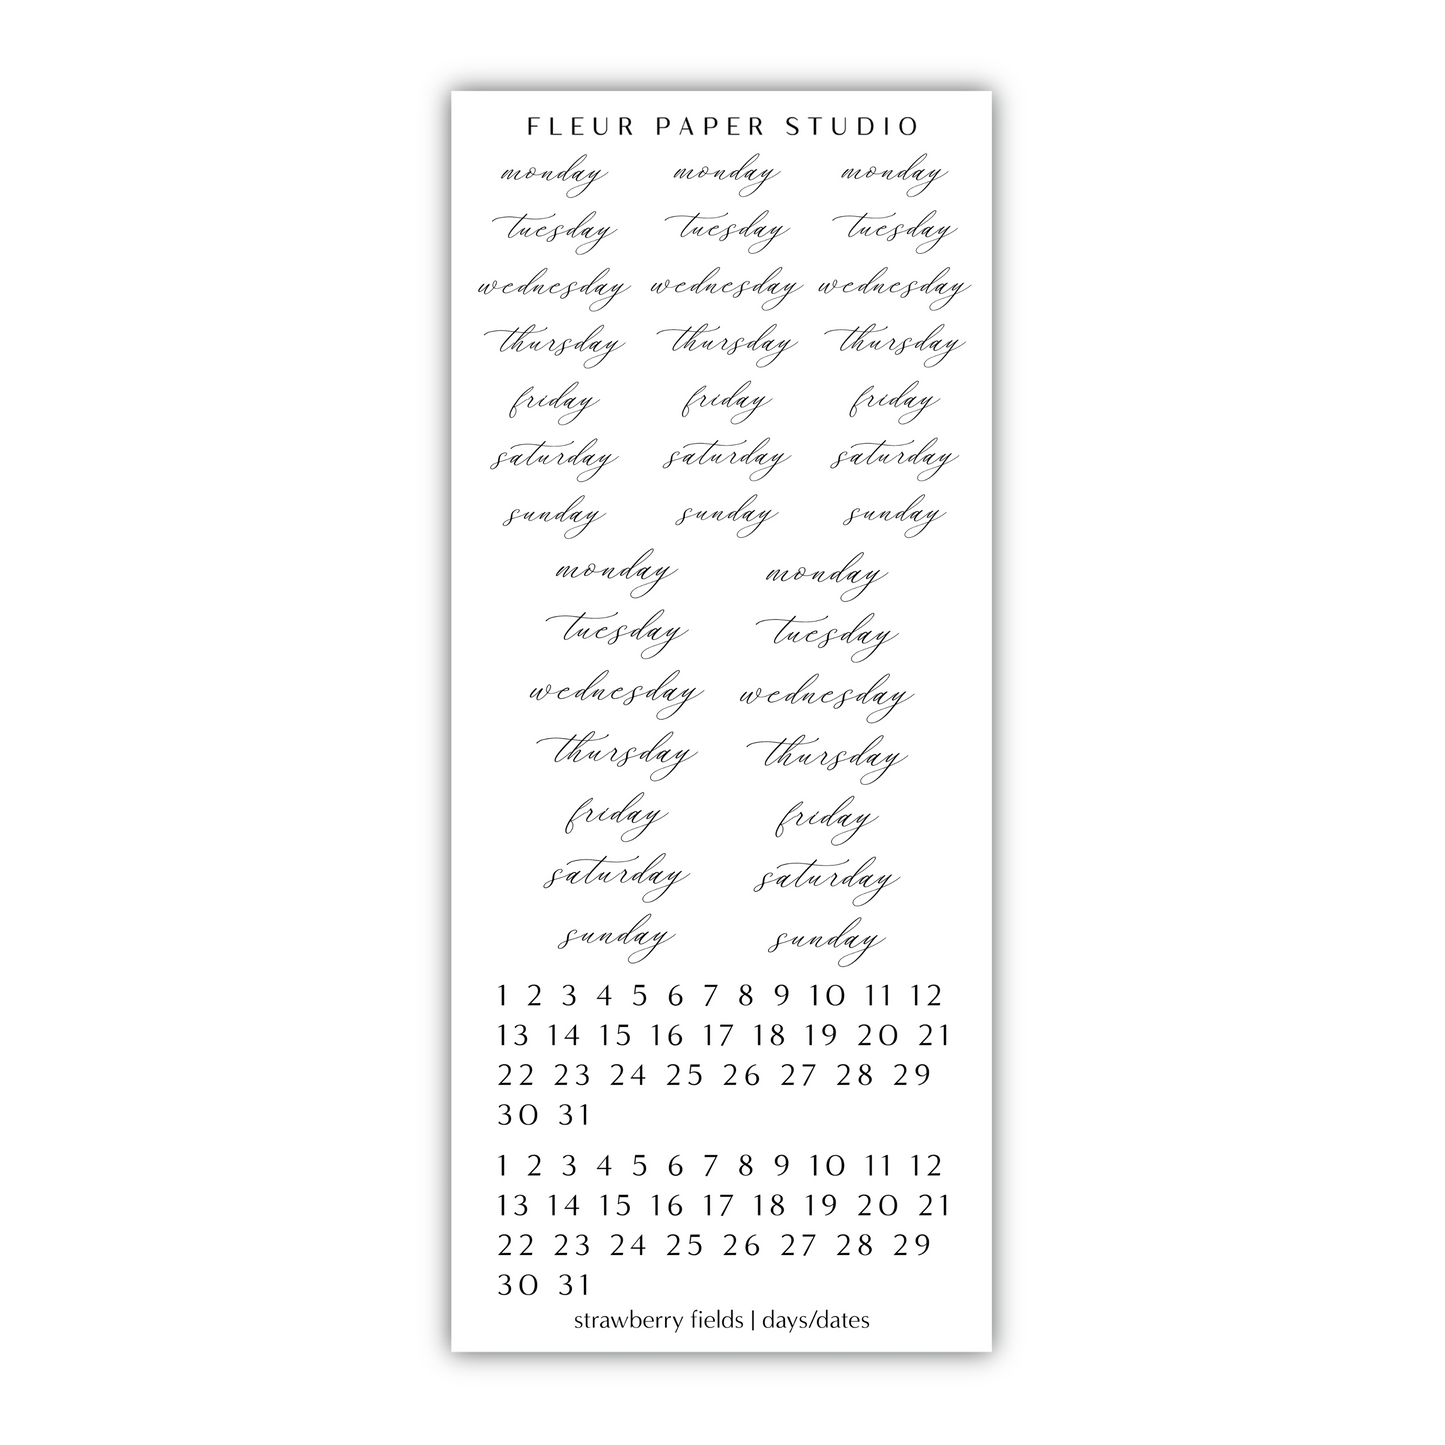 FLEUR PAPER STUDIO
monday monday monday
tuesday tuesday tuesday
wednesday wednesday wednesday
thursday thursday thursday
friday friday friday
saturday saturday saturday
sunday sunday sunday
monday monday
tuesday tuesday
wednesday wednesday
thursday thursday
friday friday
saturday saturday
sunday sunday
1 2 3 4 5 6 7 8 9 10 11 12
13 14 15 16 17 18 19 20 21
22 23 24 25 26 27 28 29
30 31
1 2 3 4 5 6 7 8 9 10 11 12
13 14 15 16 17 18 19 20 21
22 23 24 25 26 27 28 29
30 31
strawberry fields | days/dates